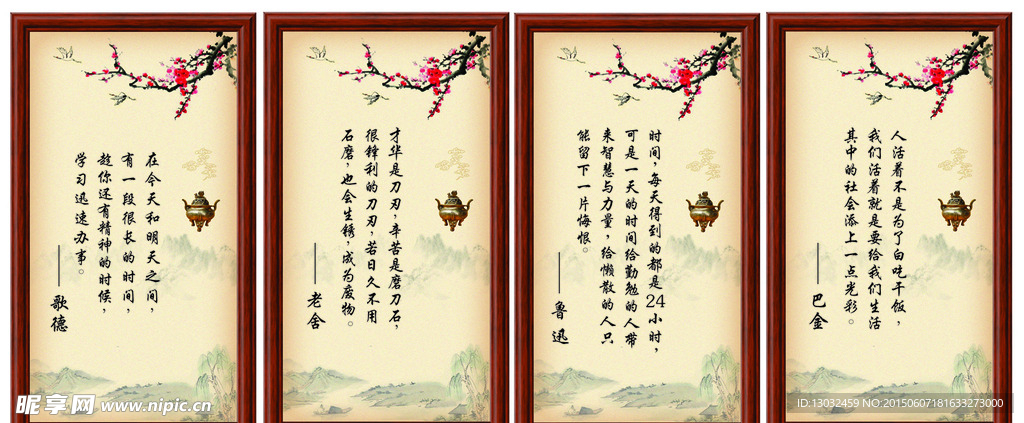 在今天和明天之间，
有一段很长的时间，
趁你还有精神的时候，
学习迅速办事。
——歌德
才华是刀刃，辛苦是磨刀石，
很锋利的刀刃，若日久不用
石磨，也会生锈，成为废物。
——老舍
时间，每天得到的都是24小时，
可是一天的时间给勤勉的人带
来智慧与力量，给懒散的人只
能留下一片悔恨。
——鲁迅
人活着不是为了白吃干饭，
我们活着就是要给我们生活
其中的社会添上一点光彩。
——巴金
昵享网 www.nipic.cn
ID:13032459 NO:20150607181633273000